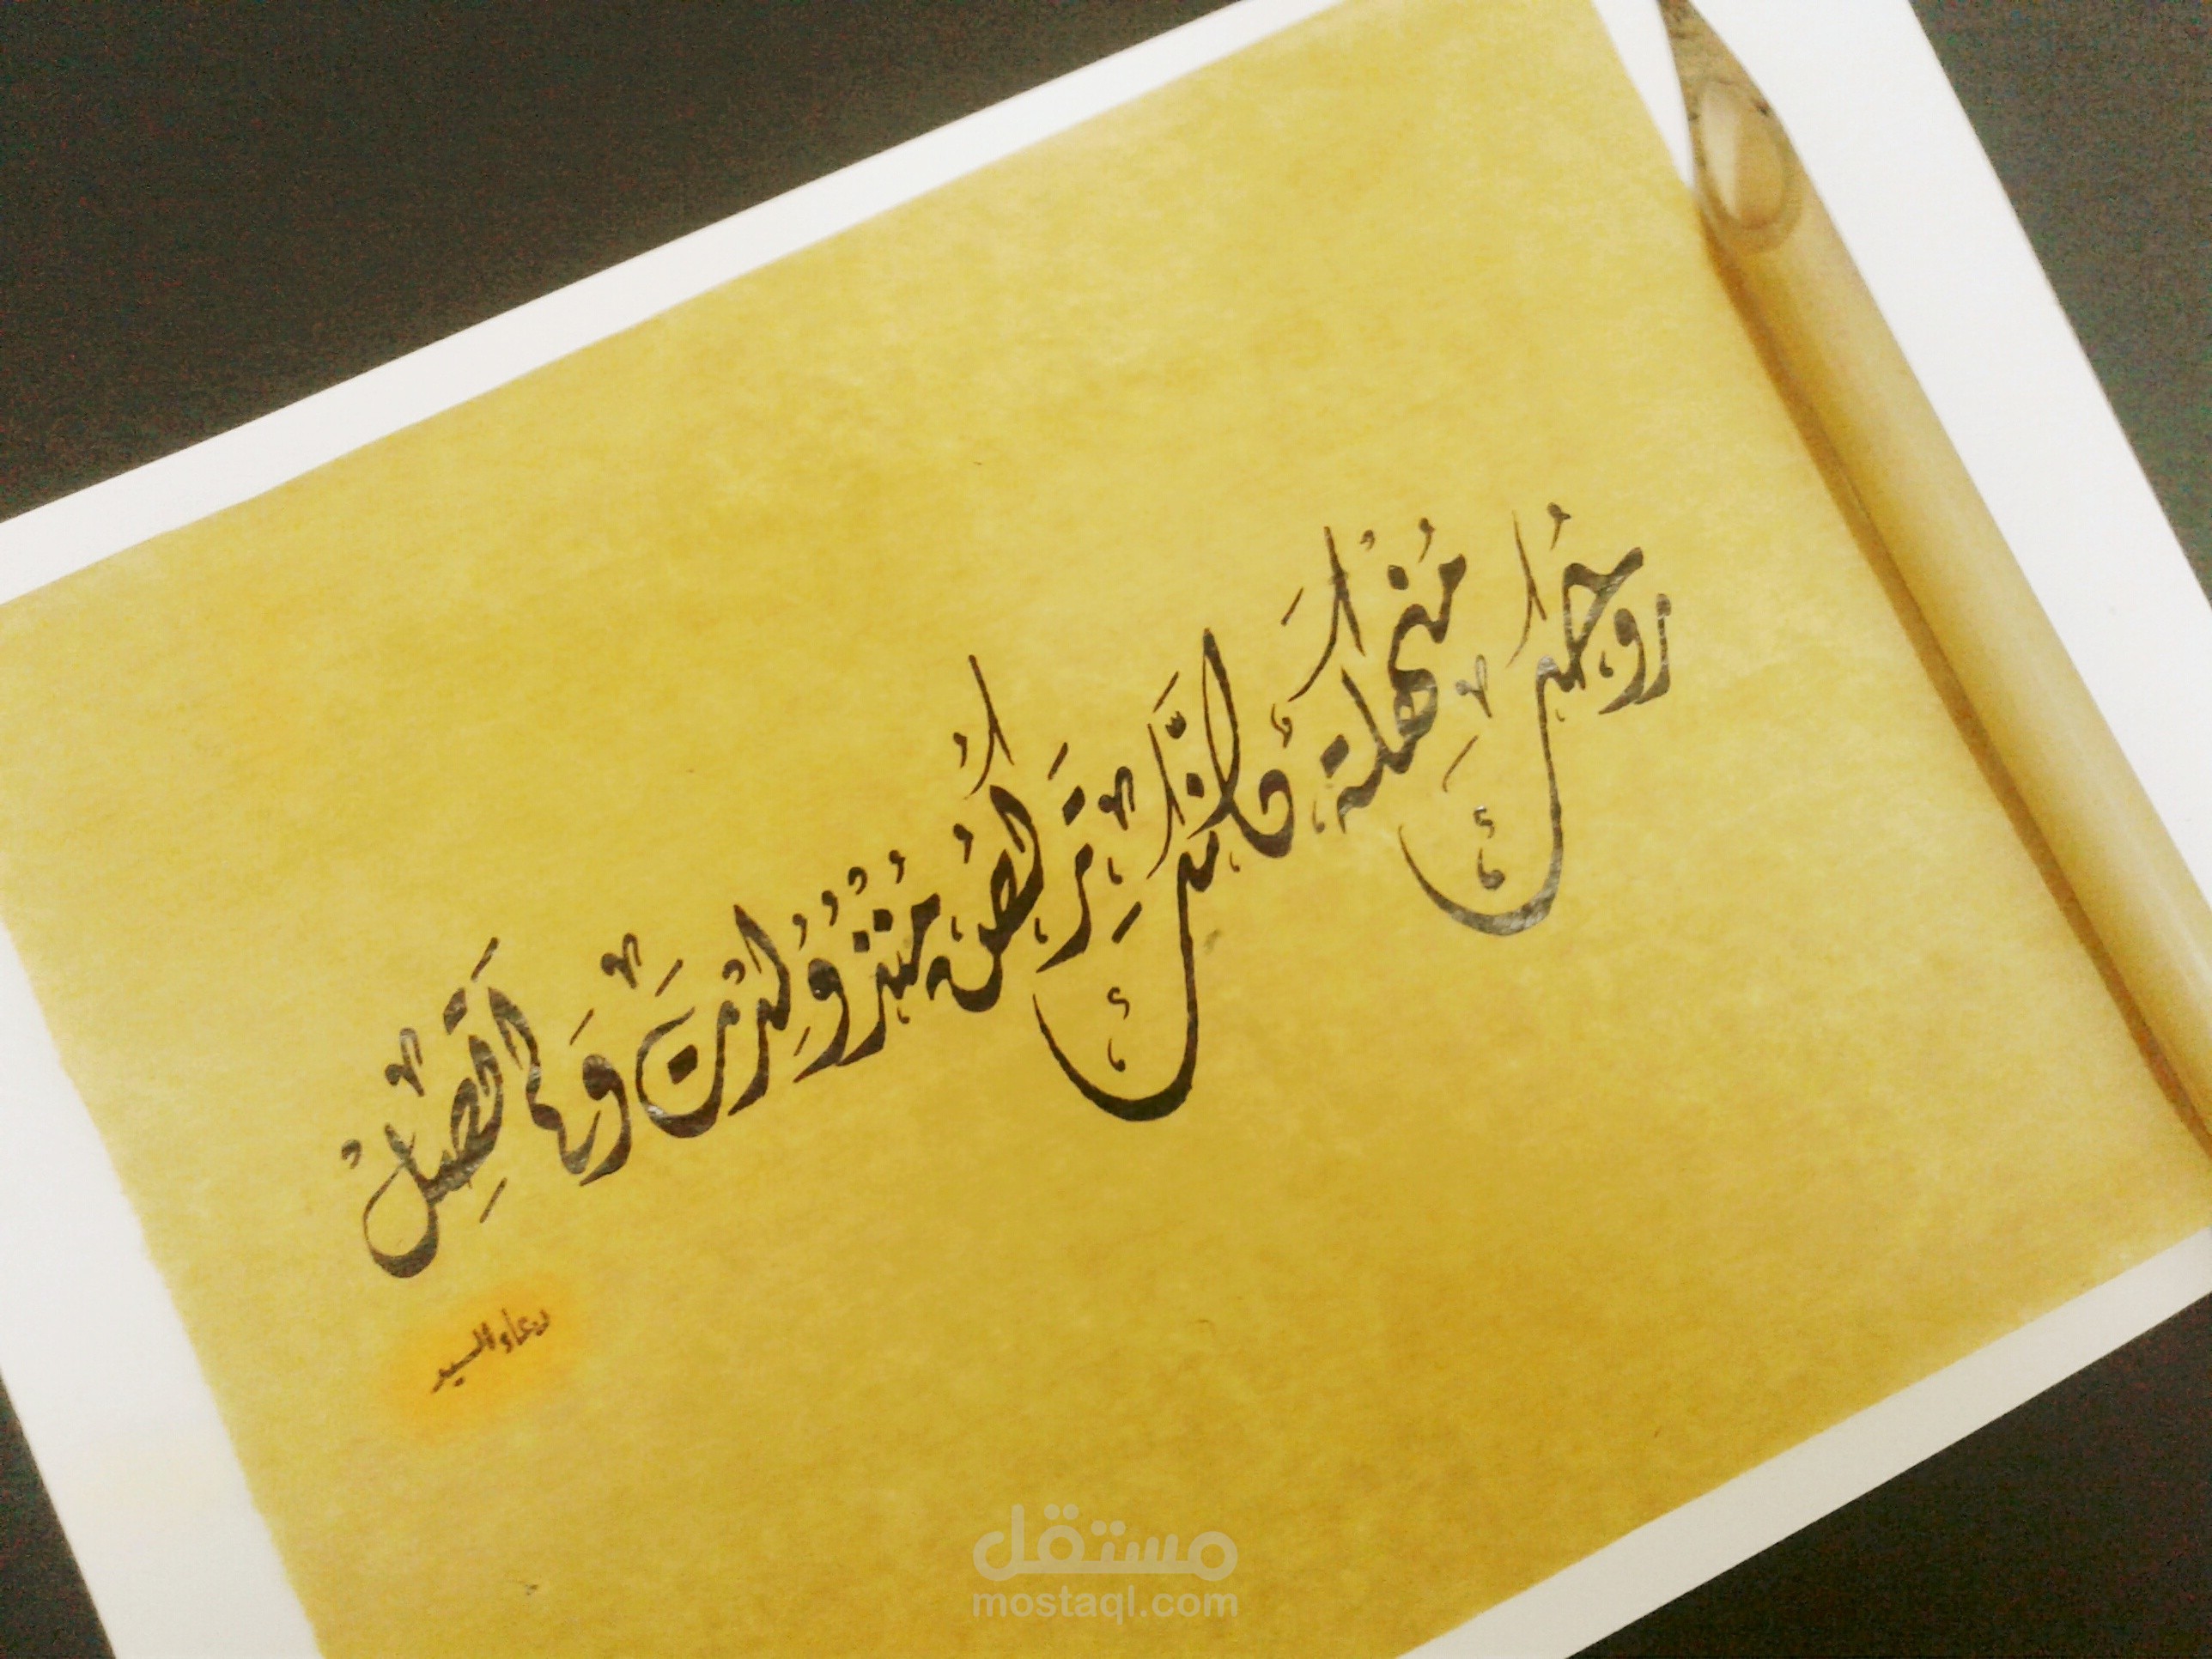 رُوحُكَ مُنْهَكَة كأنَّكَ تَركُضُ مُنْذُ وُلِدْتَ وَلم تَصِلْ
دعاء السيد
مستقل
mostaql.com